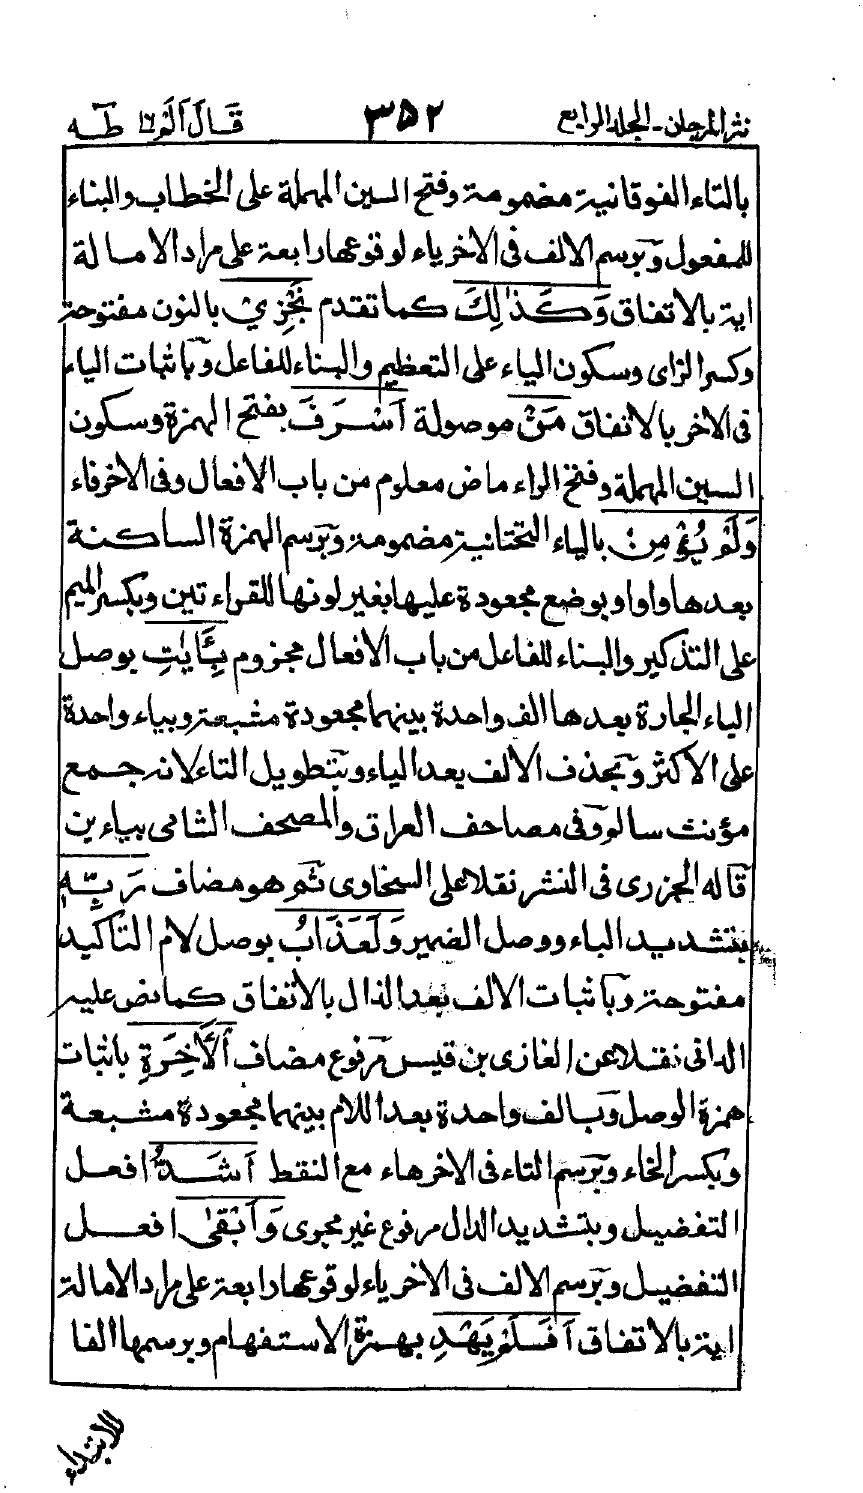 نثر المرجان - الجلد الرابع ٣٥٢ قَالَ اَلَمْ ١٦ طٰهٰ
بالتاء الفوقانية مضمومة وفتح السين المهملة على الخطاب والبناء
للمفعول وبرسم الالف فى الاخر ياء لوقوعها رابعة على مراد الامالة
اية بالاتفاق وَكَذٰلِكَ كما تقدم نَجْزِيْ بالنون مفتوحة
وكسر الزاى وسكون الياء على التعظيم والبناء للفاعل وباثبات الياء
فى الاخر بالاتفاق مَنْ موصولة اَسْرَفَ بفتح الهمزة وسكون
السين المهملة وفتح الراء ماض معلوم من باب الافعال وفى الاخر فاء
وَلَمْ يُؤْمِنْ بالياء التحتانية مضمومة وبرسم الهمزة الساكنة
بعدها واوا وبوضع مجعودة عليها بغير لونها للقراءتين وبكسر الميم
على التذكير والبناء للفاعل من باب الافعال مجزوم بِـَٔايٰتِ بوصل
الباء الجارة بعدها الف واحدة بينهما مجعودة مشبعة وبياء واحدة
على الاكثر وبحذف الالف بعد الياء وبتطويل التاء لانه جمع
مؤنث سالم وفى مصاحف العراق والمصحف الشامى بياءين
قاله الجزرى فى النشر نقلا على السخاوى ثم هو مضاف رَبِّهٖ
بتشديد الباء ووصل الضمير وَلَعَذَابُ بوصل لام التأكيد
مفتوحة وباثبات الالف بعد الذال بالاتفاق كما نص عليه
الدانى نقلا عن الغازى بن قيس مرفوع مضاف اَلْاٰخِرَةِ باثبات
همزة الوصل وبالف واحدة بعد اللام بينهما مجعودة مشبعة
وبكسر الخاء وبرسم التاء فى الاخر هاء مع النقط اَشَدُّ افعل
التفضيل وبتشديد الدال مرفوع غير مجرى وَاَبْقٰى افعل
التفضيل وبرسم الالف فى الاخر ياء لوقوعها رابعة على مراد الامالة
اية بالاتفاق اَفَلَمْ يَهْدِ بهمزة الاستفهام وبرسمها الفا
للابتداء